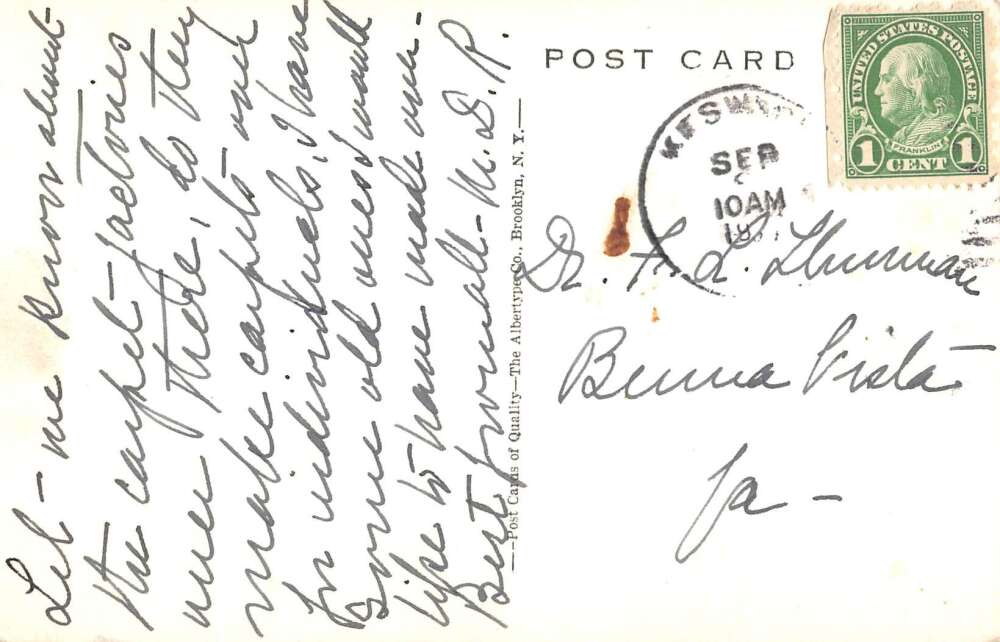 Let me know about
the carpet factories
over there, do they
make carpets over
for individuals, I have
Some old ones I would
like to have made over.
Best for all - M. D. R.
—Post Cards of Quality—The Albertype Co., Brooklyn, N. Y.—
POST CARD
UNITED STATES POSTAGE
FRANKLIN
1 CENT 1
SEP
10AM
Dr. F. L. Thurman
Buena Vista
Va -